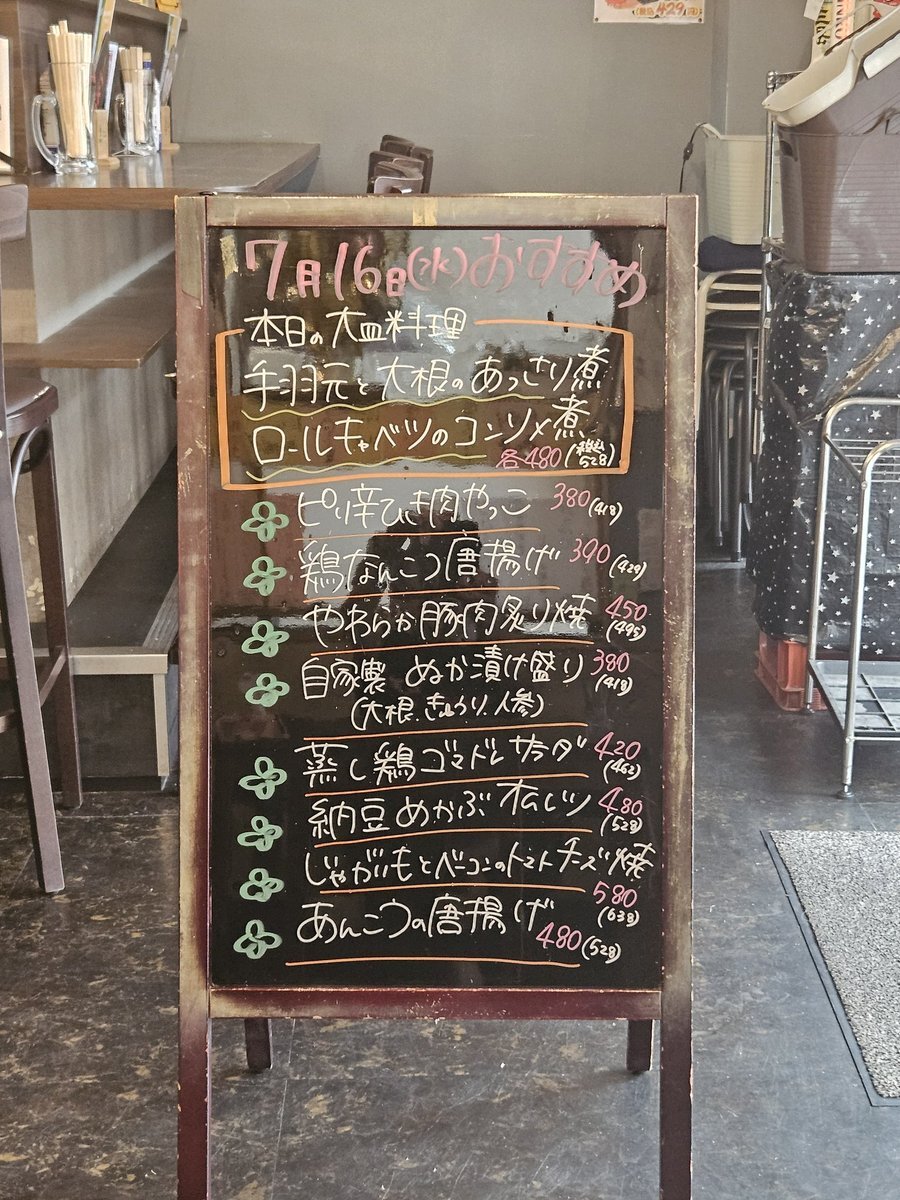 (税込429円)
7月16日(水)おすすめ
本日の大皿料理
手羽元と大根のあっさり煮
ロールキャベツのコンソメ煮
各480(税込528)
ピリ辛ひき肉やっこ 380(418)
鶏なんこつ唐揚げ 390(429)
やわらか豚肉炙り焼 450(495)
自家製 ぬか漬け盛り 380(418)
(大根.きゅうり.人参)
蒸し鶏ゴマドレサラダ 420(462)
納豆めかぶオムレツ 480(528)
じゃがいもとベーコンのトマトチーズ焼
580(638)
あんこうの唐揚げ 480(528)